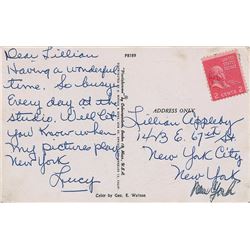 Dear Lillian
Having a wonderful
time. So busy
Every day at the
studio. Will let
you know when
my pictures play
New York
Lucy
P8189
ADDRESS ONLY
Lillian Appleby
1413 E. 67th St.
New York City
New York
New York
Color by Geo. E. Watson
2 CENTS 2